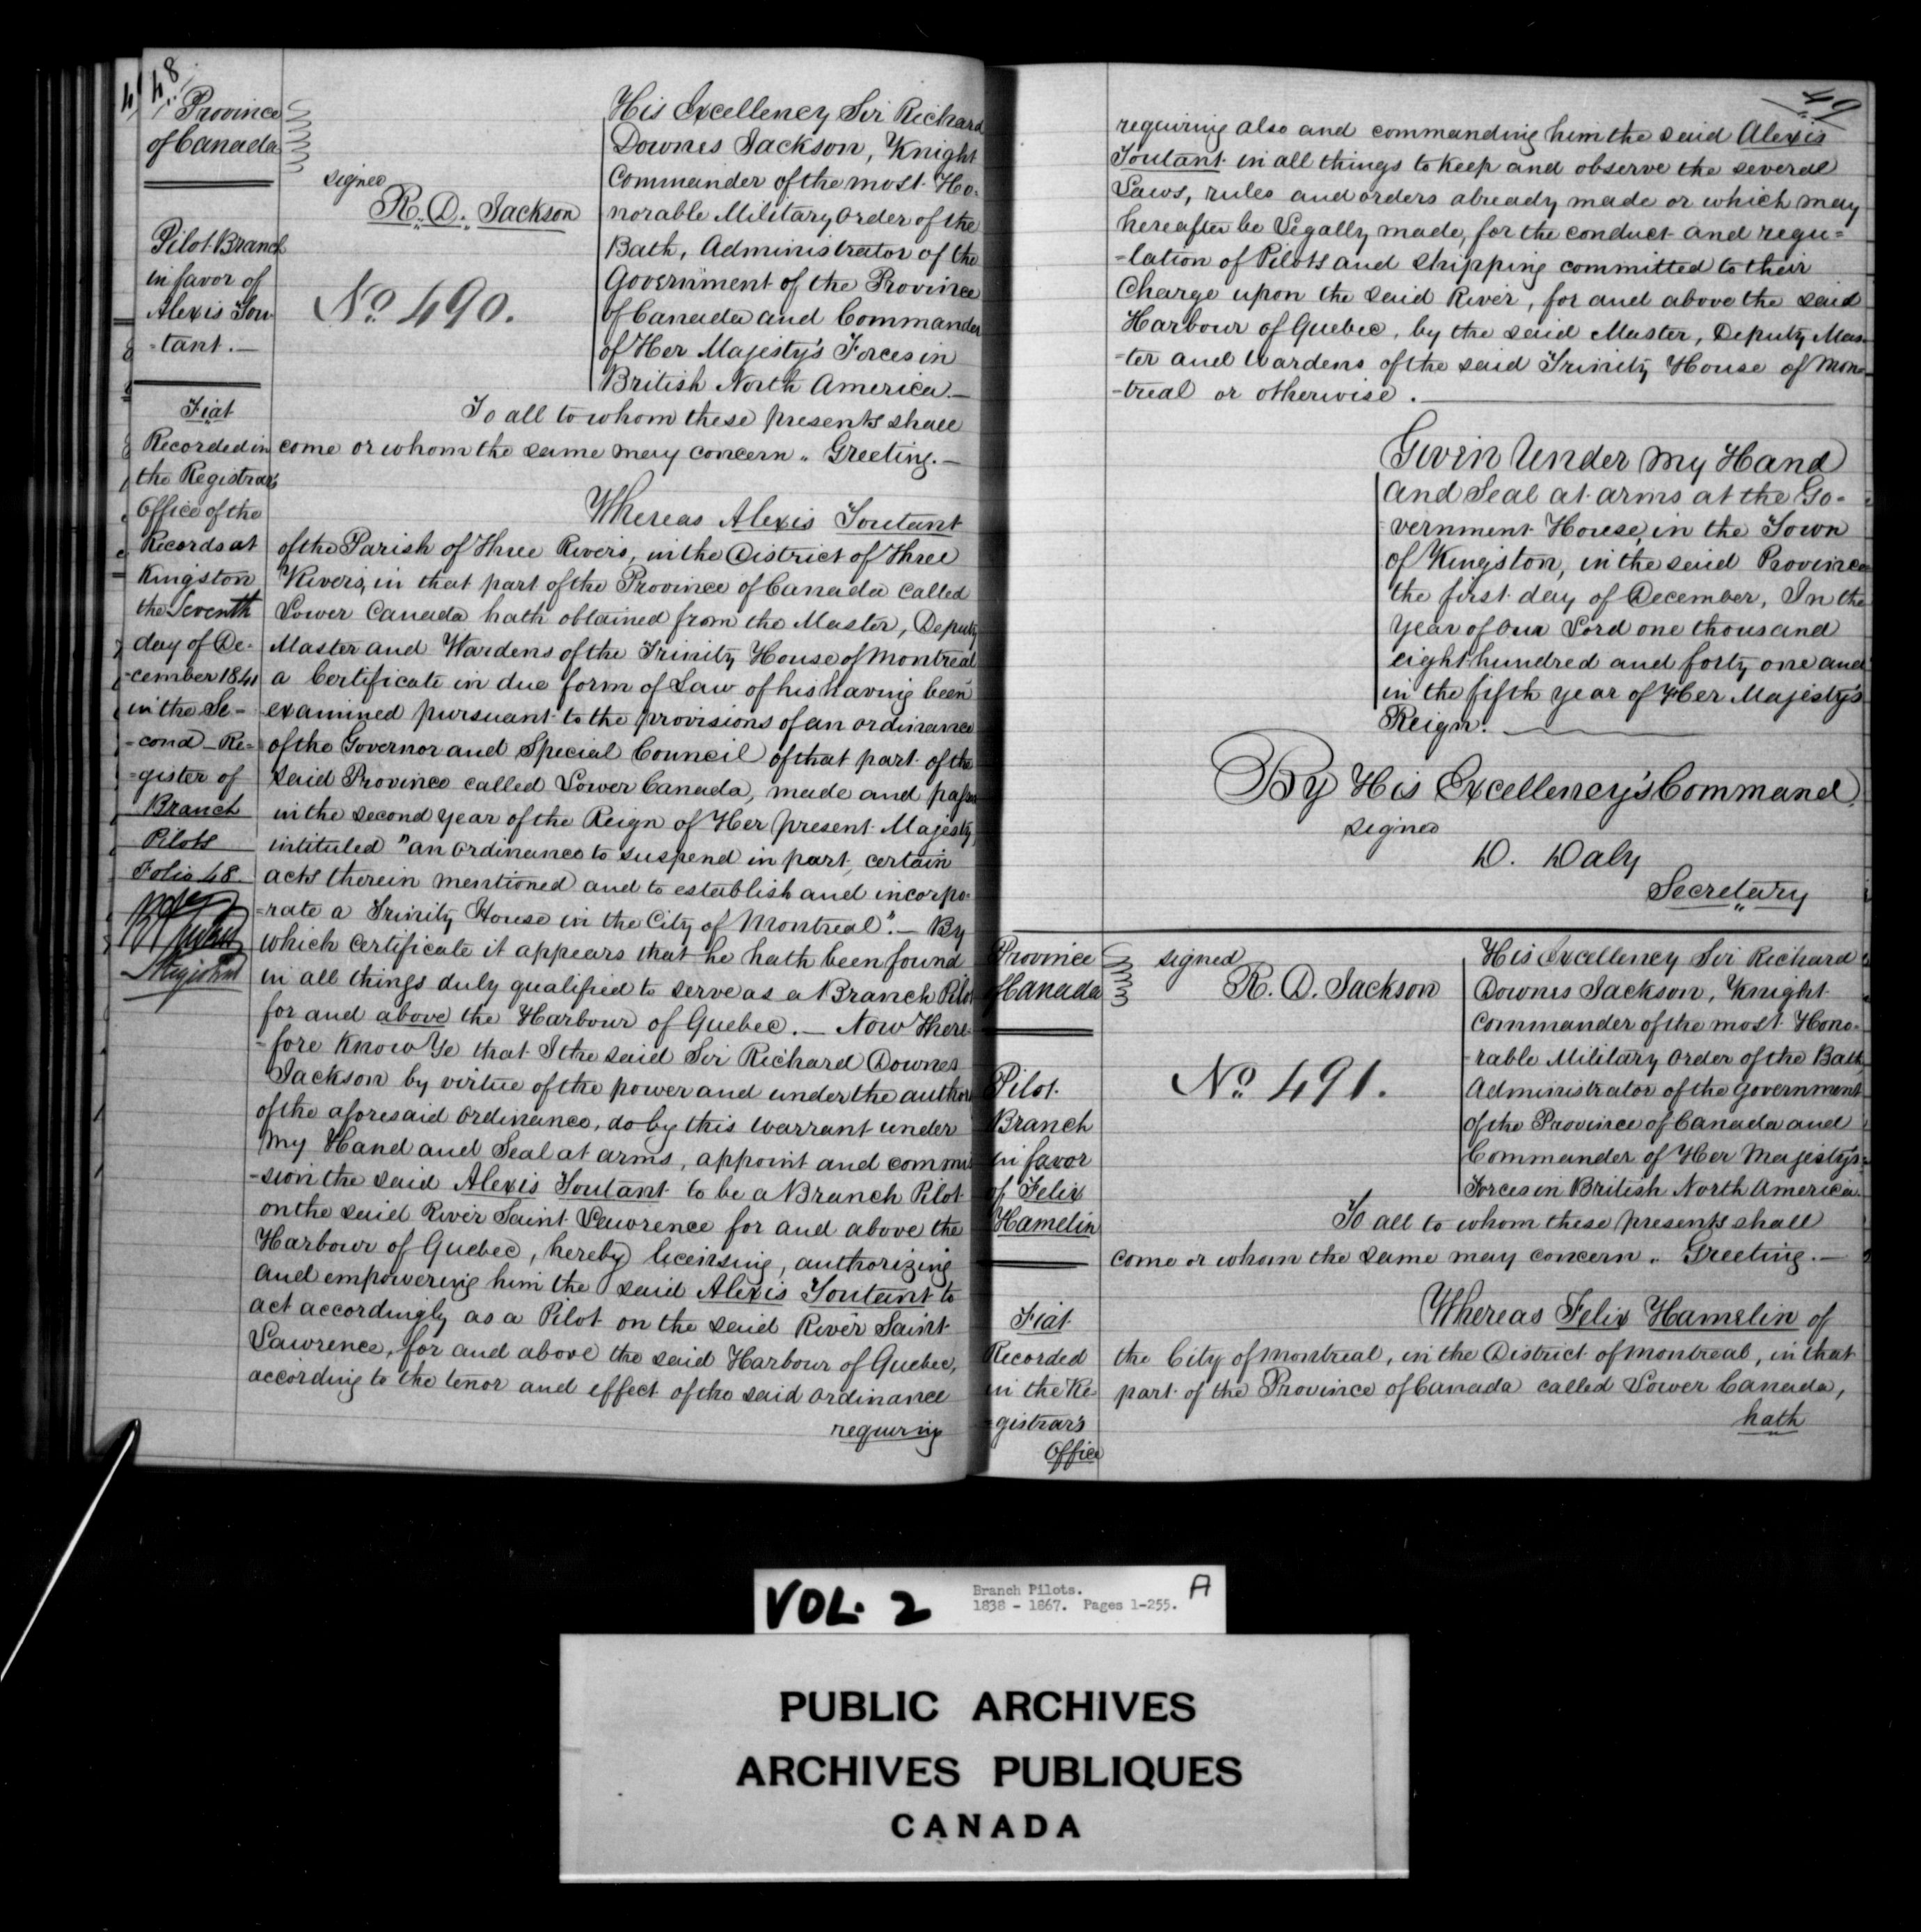 48
Province
of Canada
Pilot Branch
in favor of
Alexis Tou-
-tant.—
Fiat
Recorded in
the Registrar's
Office of the
Records at
Kingston
the Seventh
day of De-
-cember 1841
in the Se-
-cond Re-
-gister of
Branch
Pilots
Folio 48.
signed
R. D. Jackson
No. 490.
His Excellency Sir Richard
Downes Jackson, Knight
Commander of the most Ho-
norable Military Order of the
Bath, Administrator of the
Government of the Province
of Canada and Commander
of Her Majesty's Forces in
British North America.—
To all to whom these presents shall
come or whom the same may concern „ Greeting.—
Whereas Alexis Toutant
of the Parish of Three Rivers, in the District of Three
Rivers, in that part of the Province of Canada called
Lower Canada hath obtained from the Master, Deputy
Master and Wardens of the Trinity House of Montreal
a Certificate in due form of Law of his having been
examined pursuant to the provisions of an ordinance
of the Governor and Special Council of that part of the
said Province called Lower Canada, made and passed
in the second year of the Reign of Her present Majesty,
intituled "an ordinance to suspend in part, certain
acts therein mentioned and to establish and incorpo-
-rate a Trinity House in the City of Montreal".— By
which Certificate it appears that he hath been found
in all things duly qualified to serve as a Branch Pilot
for and above the Harbour of Quebec.— Now There-
-fore Know Ye that I the said Sir Richard Downes
Jackson by virtue of the power and under the author
of the aforesaid ordinance, do by this warrant under
My Hand and Seal at arms, appoint and commis
-sion the said Alexis Toutant to be a Branch Pilot
on the said River Saint Lawrence for and above the
Harbour of Quebec, hereby licensing, authorizing
and empowering him the said Alexis Toutant to
act accordingly as a Pilot on the said River Saint
Lawrence, for and above the said Harbour of Quebec,
according to the tenor and effect of the said ordinance
requiring
49
requiring also and commanding him the said Alexis
Toutant in all things to keep and observe the several
Laws, rules and orders already made or which may
hereafter be Legally made, for the conduct and regu=
-lation of Pilots and shipping committed to their
Charge upon the said River, for and above the said
Harbour of Quebec, by the said Master, Deputy Mas-
-ter and Wardens of the said Trinity House of Mon-
-treal or otherwise.
Given Under My Hand
and Seal at arms at the Go-
vernment House, in the Town
of Kingston, in the said Province
the first day of December, In the
Year of Our Lord one thousand
eight hundred and forty one and
in the fifth year of Her Majesty's
Reign.
By His Excellency's Command.
signed
D. Daly
Secretary
Province
of Canada
Pilot
Branch
in favor
of Felix
Hamelin
Fiat
Recorded
in the Re-
-gistrar's
Office
signed
R. D. Jackson
No. 491.
His Excellency Sir Richard
Downes Jackson, Knight
Commander of the most Hono-
-rable Military Order of the Bath,
Administrator of the Government
of the Province of Canada and
Commander of Her Majesty's
Forces in British North America
To all to whom these presents shall
come or whom the same may concern „ Greeting.—
Whereas Felix Hamelin of
the City of Montreal, in the District of Montreal, in that
part of the Province of Canada called Lower Canada,
hath
VOL. 2
Branch Pilots.
1838 - 1867. Pages 1-255.
A
PUBLIC ARCHIVES
ARCHIVES PUBLIQUES
CANADA